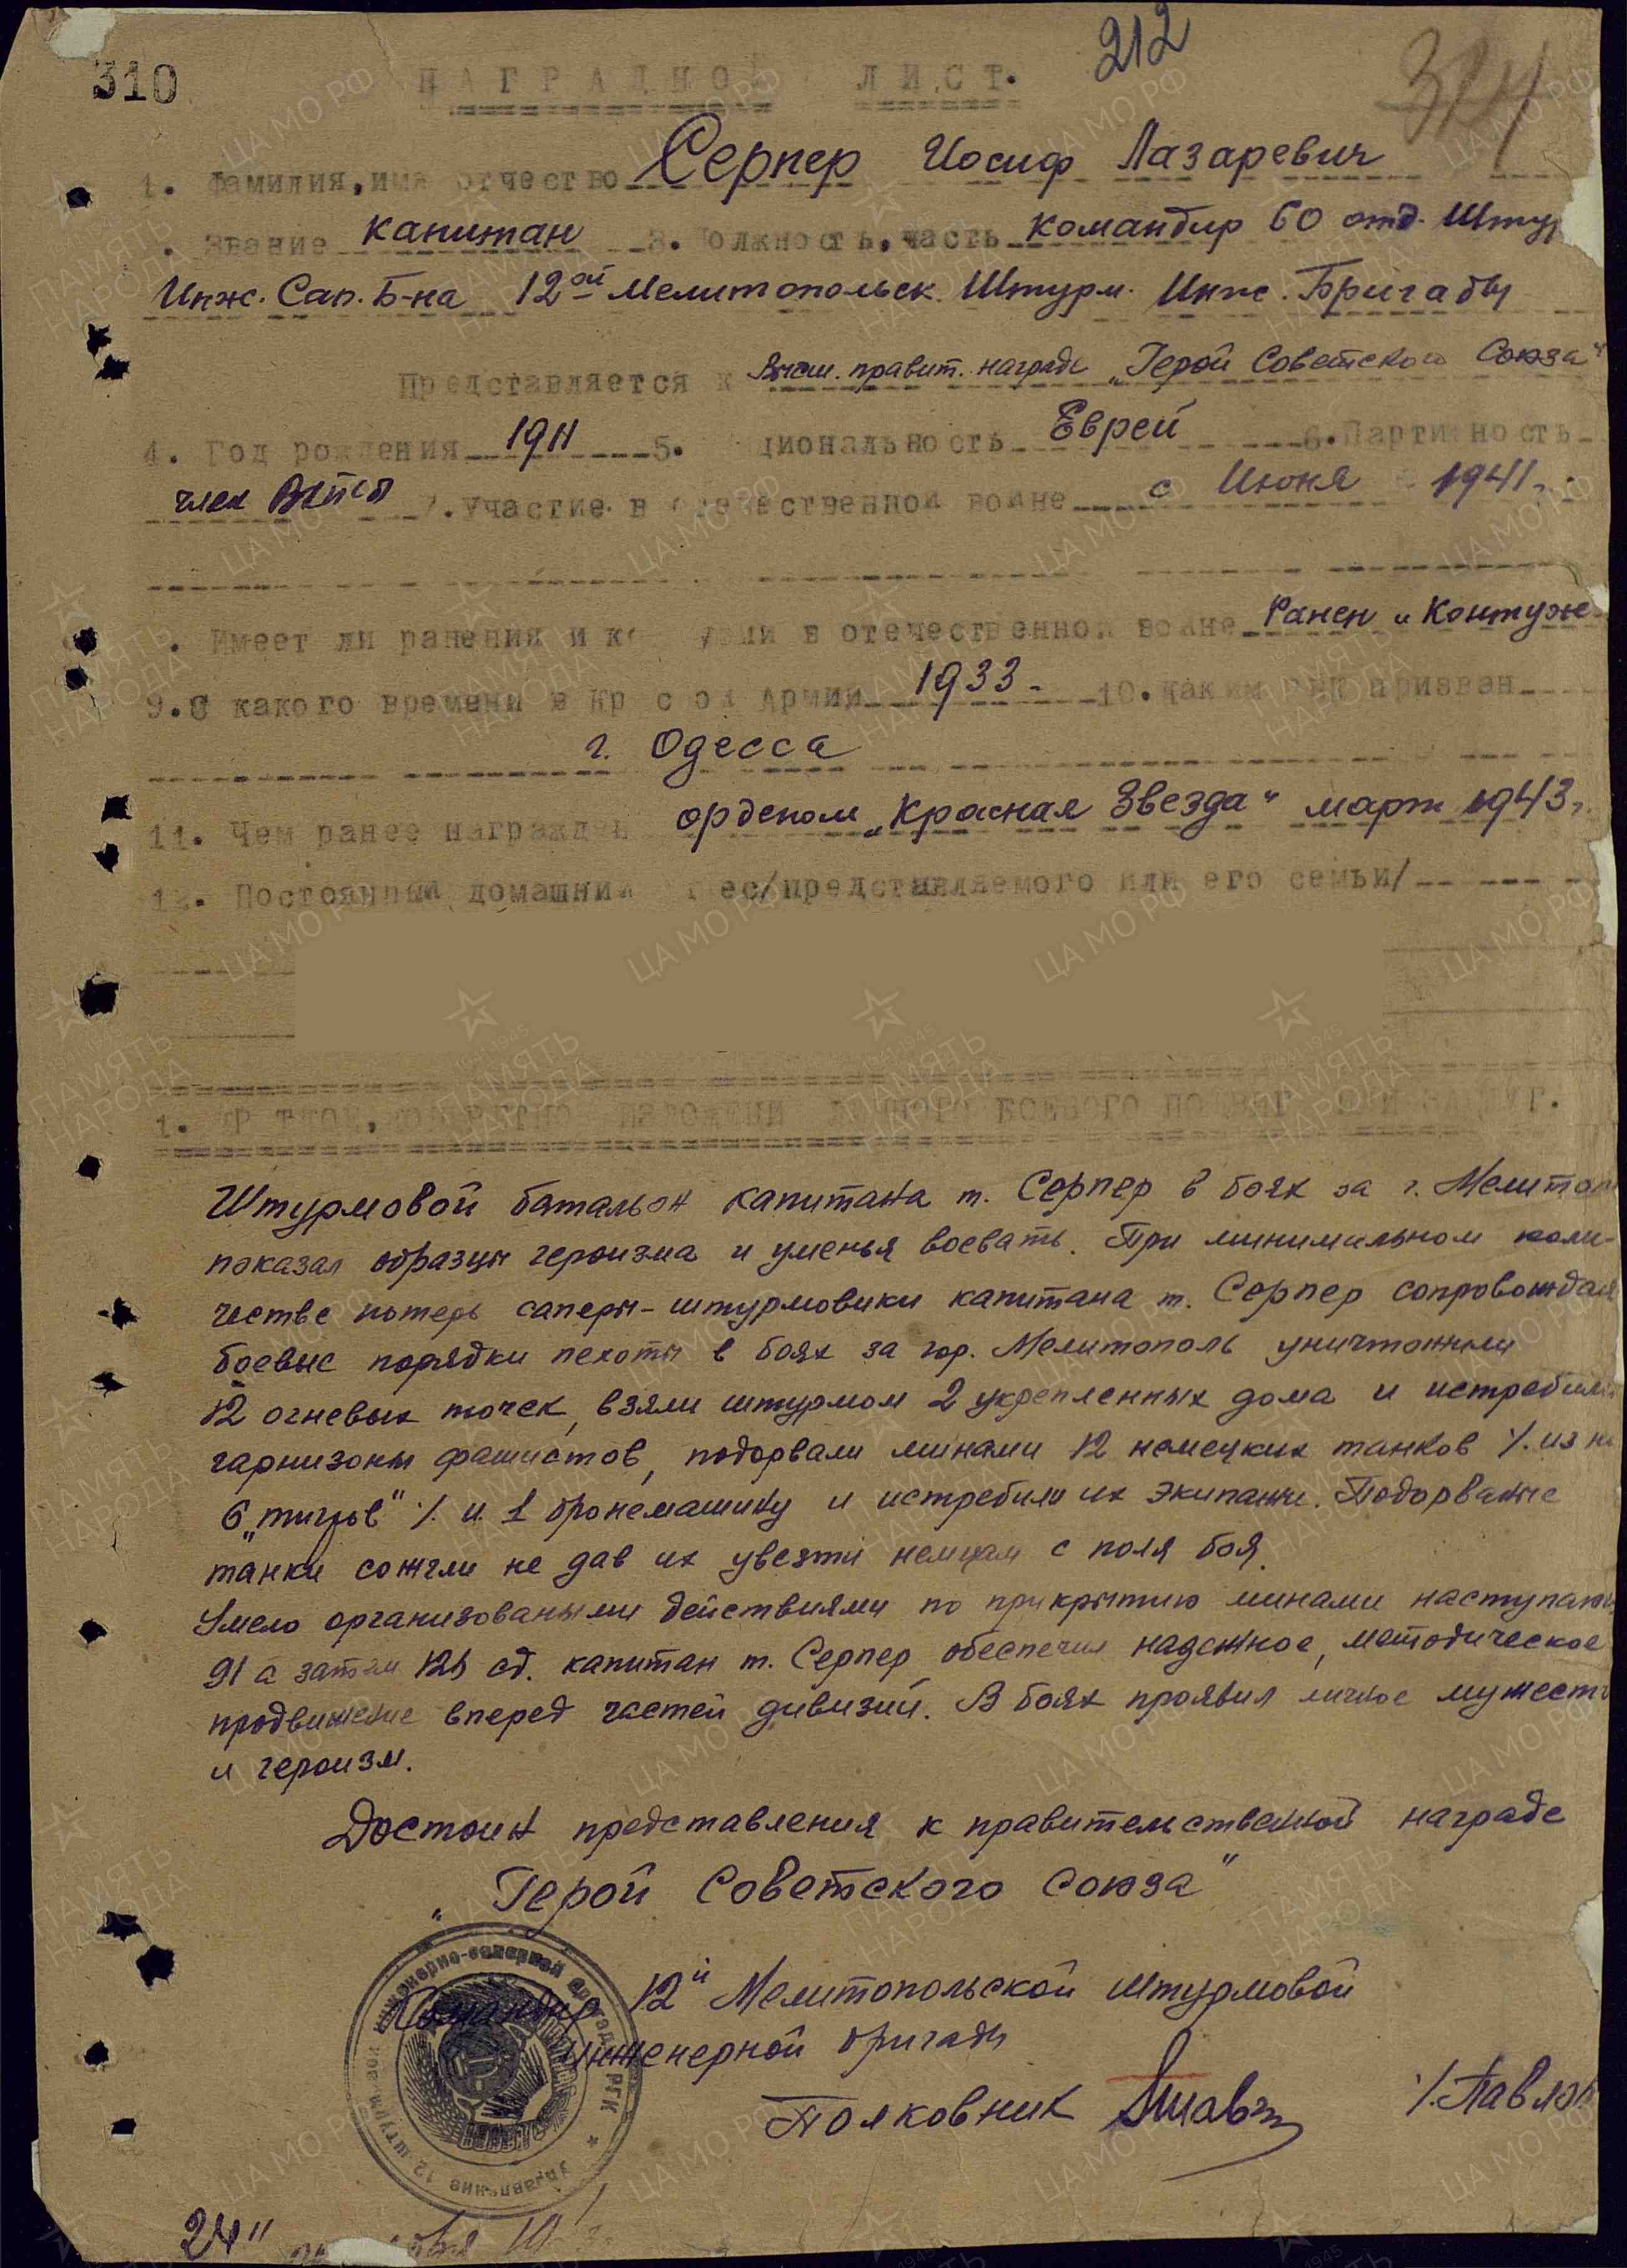 310
212
314
НАГРАДНОЙ ЛИСТ.
1. Фамилия, имя отчество Серпер Иосиф Лазаревич
. Звание капитан 3. Должность, часть командир 60 отд. Штур
Инж. Сап. Б-на 12ой Мелитопольск. Штурм. Инж. Бригады
Представляется к Высш. правит. награде „Герой Советского Союза"
4. Год рождения 1911 5. циональность Еврей 6. Партийность
член ВКП(б) 7. Участие в отечественной войне с Июня 1941г.
. Имеет ли ранения и ко узии в отечественной войне Ранен и Контуж.
9. С какого времени в Кр с ой Армии 1933. 10. Каким РВК призван
г. Одесса
11. Чем ранее награжден орденом „Красная Звезда" март 1943г.
12. Постоянный домашний ес/представляемого или его семьи/
1. КР ТКОЕ, КОНКРЕТНОЕ ИЗЛОЖЕНИЕ ЛИЧНОГО БОЕВОГО ПОДВИГ ИЛИ ЗАСЛУГ.
Штурмовой батальон капитана т. Серпер в боях за г. Мелитоп
показал образцы героизма и уменья воевать. При минимальном коли-
честве потерь саперы-штурмовики капитана т. Серпер сопровождая
боевые порядки пехоты в боях за гор. Мелитополь уничтожили
12 огневых точек, взяли штурмом 2 укрепленных дома и истребили
гарнизоны фашистов, подорвали минами 12 немецких танков /. из н
6 „тигров" /. и 1 бронемашину и истребили их экипажи. Подорваные
танки сожгли не дав их увезти немцам с поля боя.
Умело организоваными действиями по прикрытию минами наступаю
91 а затем 126 сд. капитан т. Серпер обеспечил надежное, методическое
продвижение вперед частей дивизий. В боях проявил личное мужеств
и героизм.
Достоин представления к правительственной награде
„Герой Советского Союза"
Командир 12й Мелитопольской штурмовой
инженерной бригады
Полковник /. Павлов
Управление 12 штурмовой инженерно-саперной бригады РГК
24"